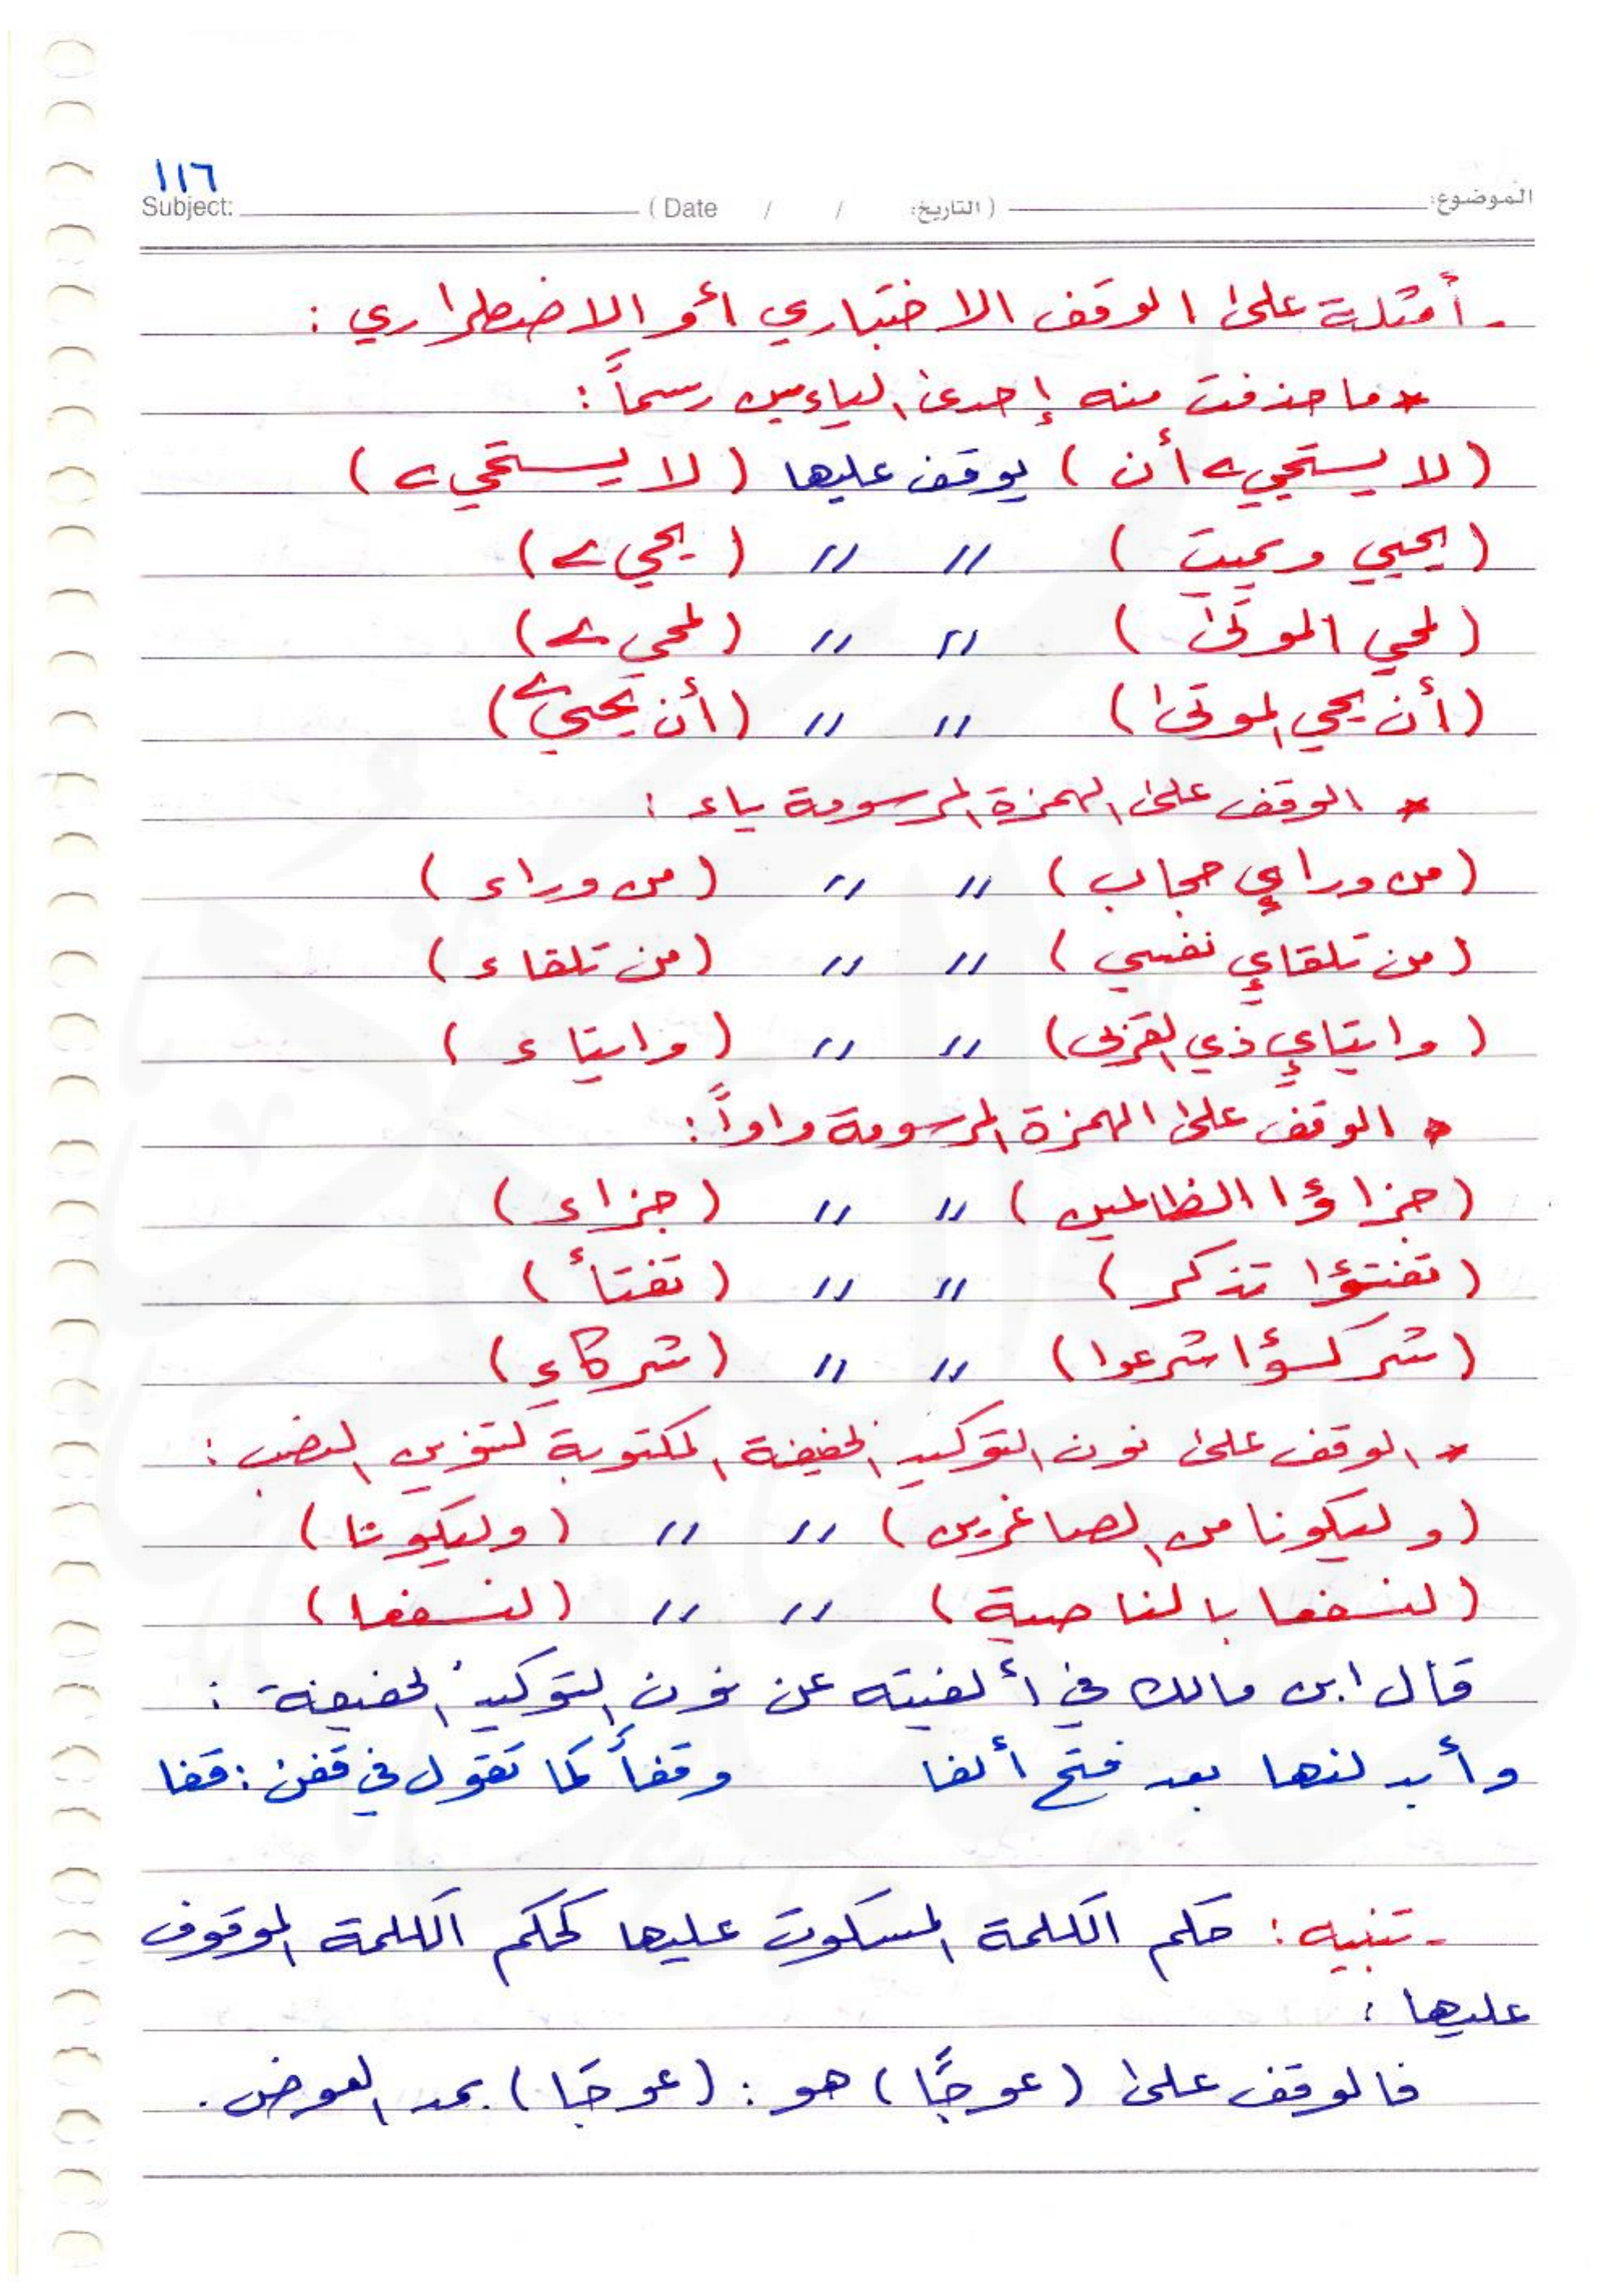 ١١٦
Subject: ( Date / / التاريخ: ) الموضوع:
- أمثلة على الوقف الاختباري أو الاضطراري :
* ما حذفت منه إحدى الياءين رسماً :
( لا يستحيے أن ) يوقف عليها ( لا يستحيے )
( يحيي ويميت ) // // ( يحيے )
( لمحي الموتى ) // // ( لمحيے )
( أن يحي الموتى ) // // ( أن يحيیے )
* الوقف على الهمزة المرسومة ياء :
( من وراءي حجاب ) // // ( من وراء )
( من تلقاءي نفسي ) // // ( من تلقاء )
( وايتاءي ذي القربى ) // // ( وايتاء )
* الوقف على الهمزة المرسومة واواً :
( جزاؤا الظالمين ) // // ( جزاء )
( تفتؤا تذكر ) // // ( تفتأ )
( شركـؤا شرعوا ) // // ( شركاء )
* الوقف على نون التوكيد الخفيفة المكتوبة كتنوين النصب :
( وليكونا من الصاغرين ) // // ( وليكونا )
( لنسفعا بالناصية ) // // ( لنسفعا )
قال ابن مالك في ألفيته عن نون التوكيد الخفيفة :
وأبدلنها بعد فتح ألفا وقفاً كما تقول في قفن : قفا
- تنبيه : حكم الكلمة المسكوت عليها كحكم الكلمة الموقوف
عليها :
فالوقف على ( عوجًا ) هو : ( عوجَا ) بمد العوض .